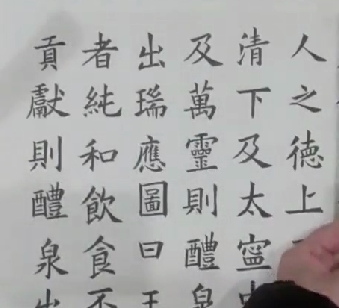 人之徳上
清下及太寧中
及萬靈則醴泉
出瑞應圖曰王
者純和飲食不
貢獻則醴泉出